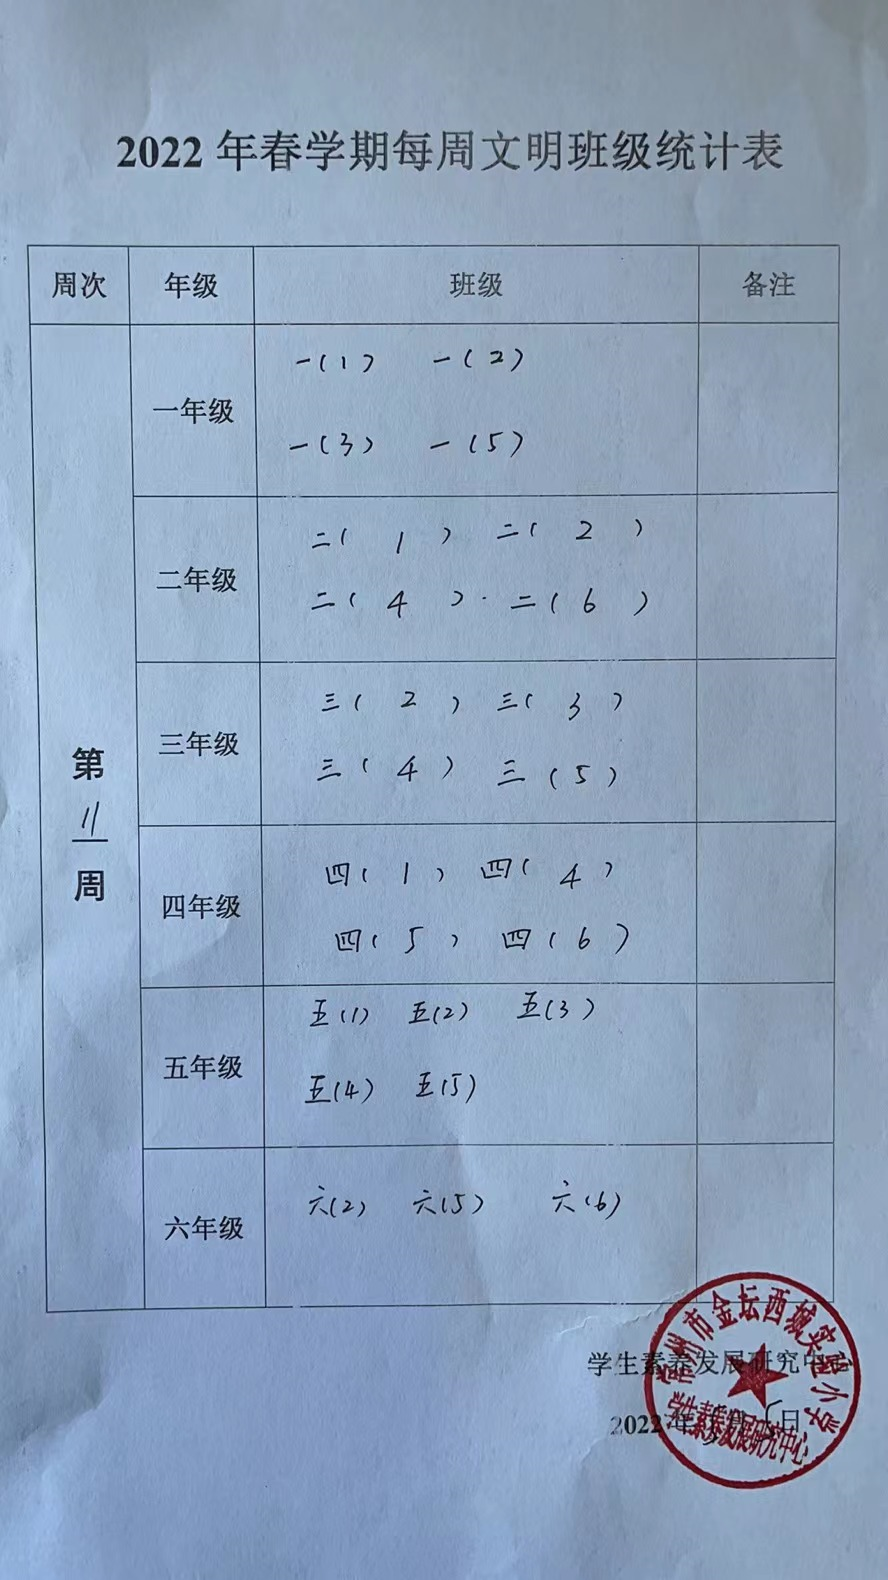 2022 年春学期每周文明班级统计表
周次 年级 班级 备注
第 11 周
一年级
一(1) 一(2)
一(3) 一(5)
二年级
二( 1 ) 二( 2 )
二( 4 ) 二( 6 )
三年级
三( 2 ) 三( 3 )
三( 4 ) 三(5)
四年级
四( 1 ) 四( 4 )
四( 5 ) 四(6)
五年级
五(1) 五(2) 五(3)
五(4) 五(5)
六年级
六(2) 六(5) 六(6)
学生素养发展研究中心
2022 年 日
常州市金坛西城实验小学
学生素养发展研究中心